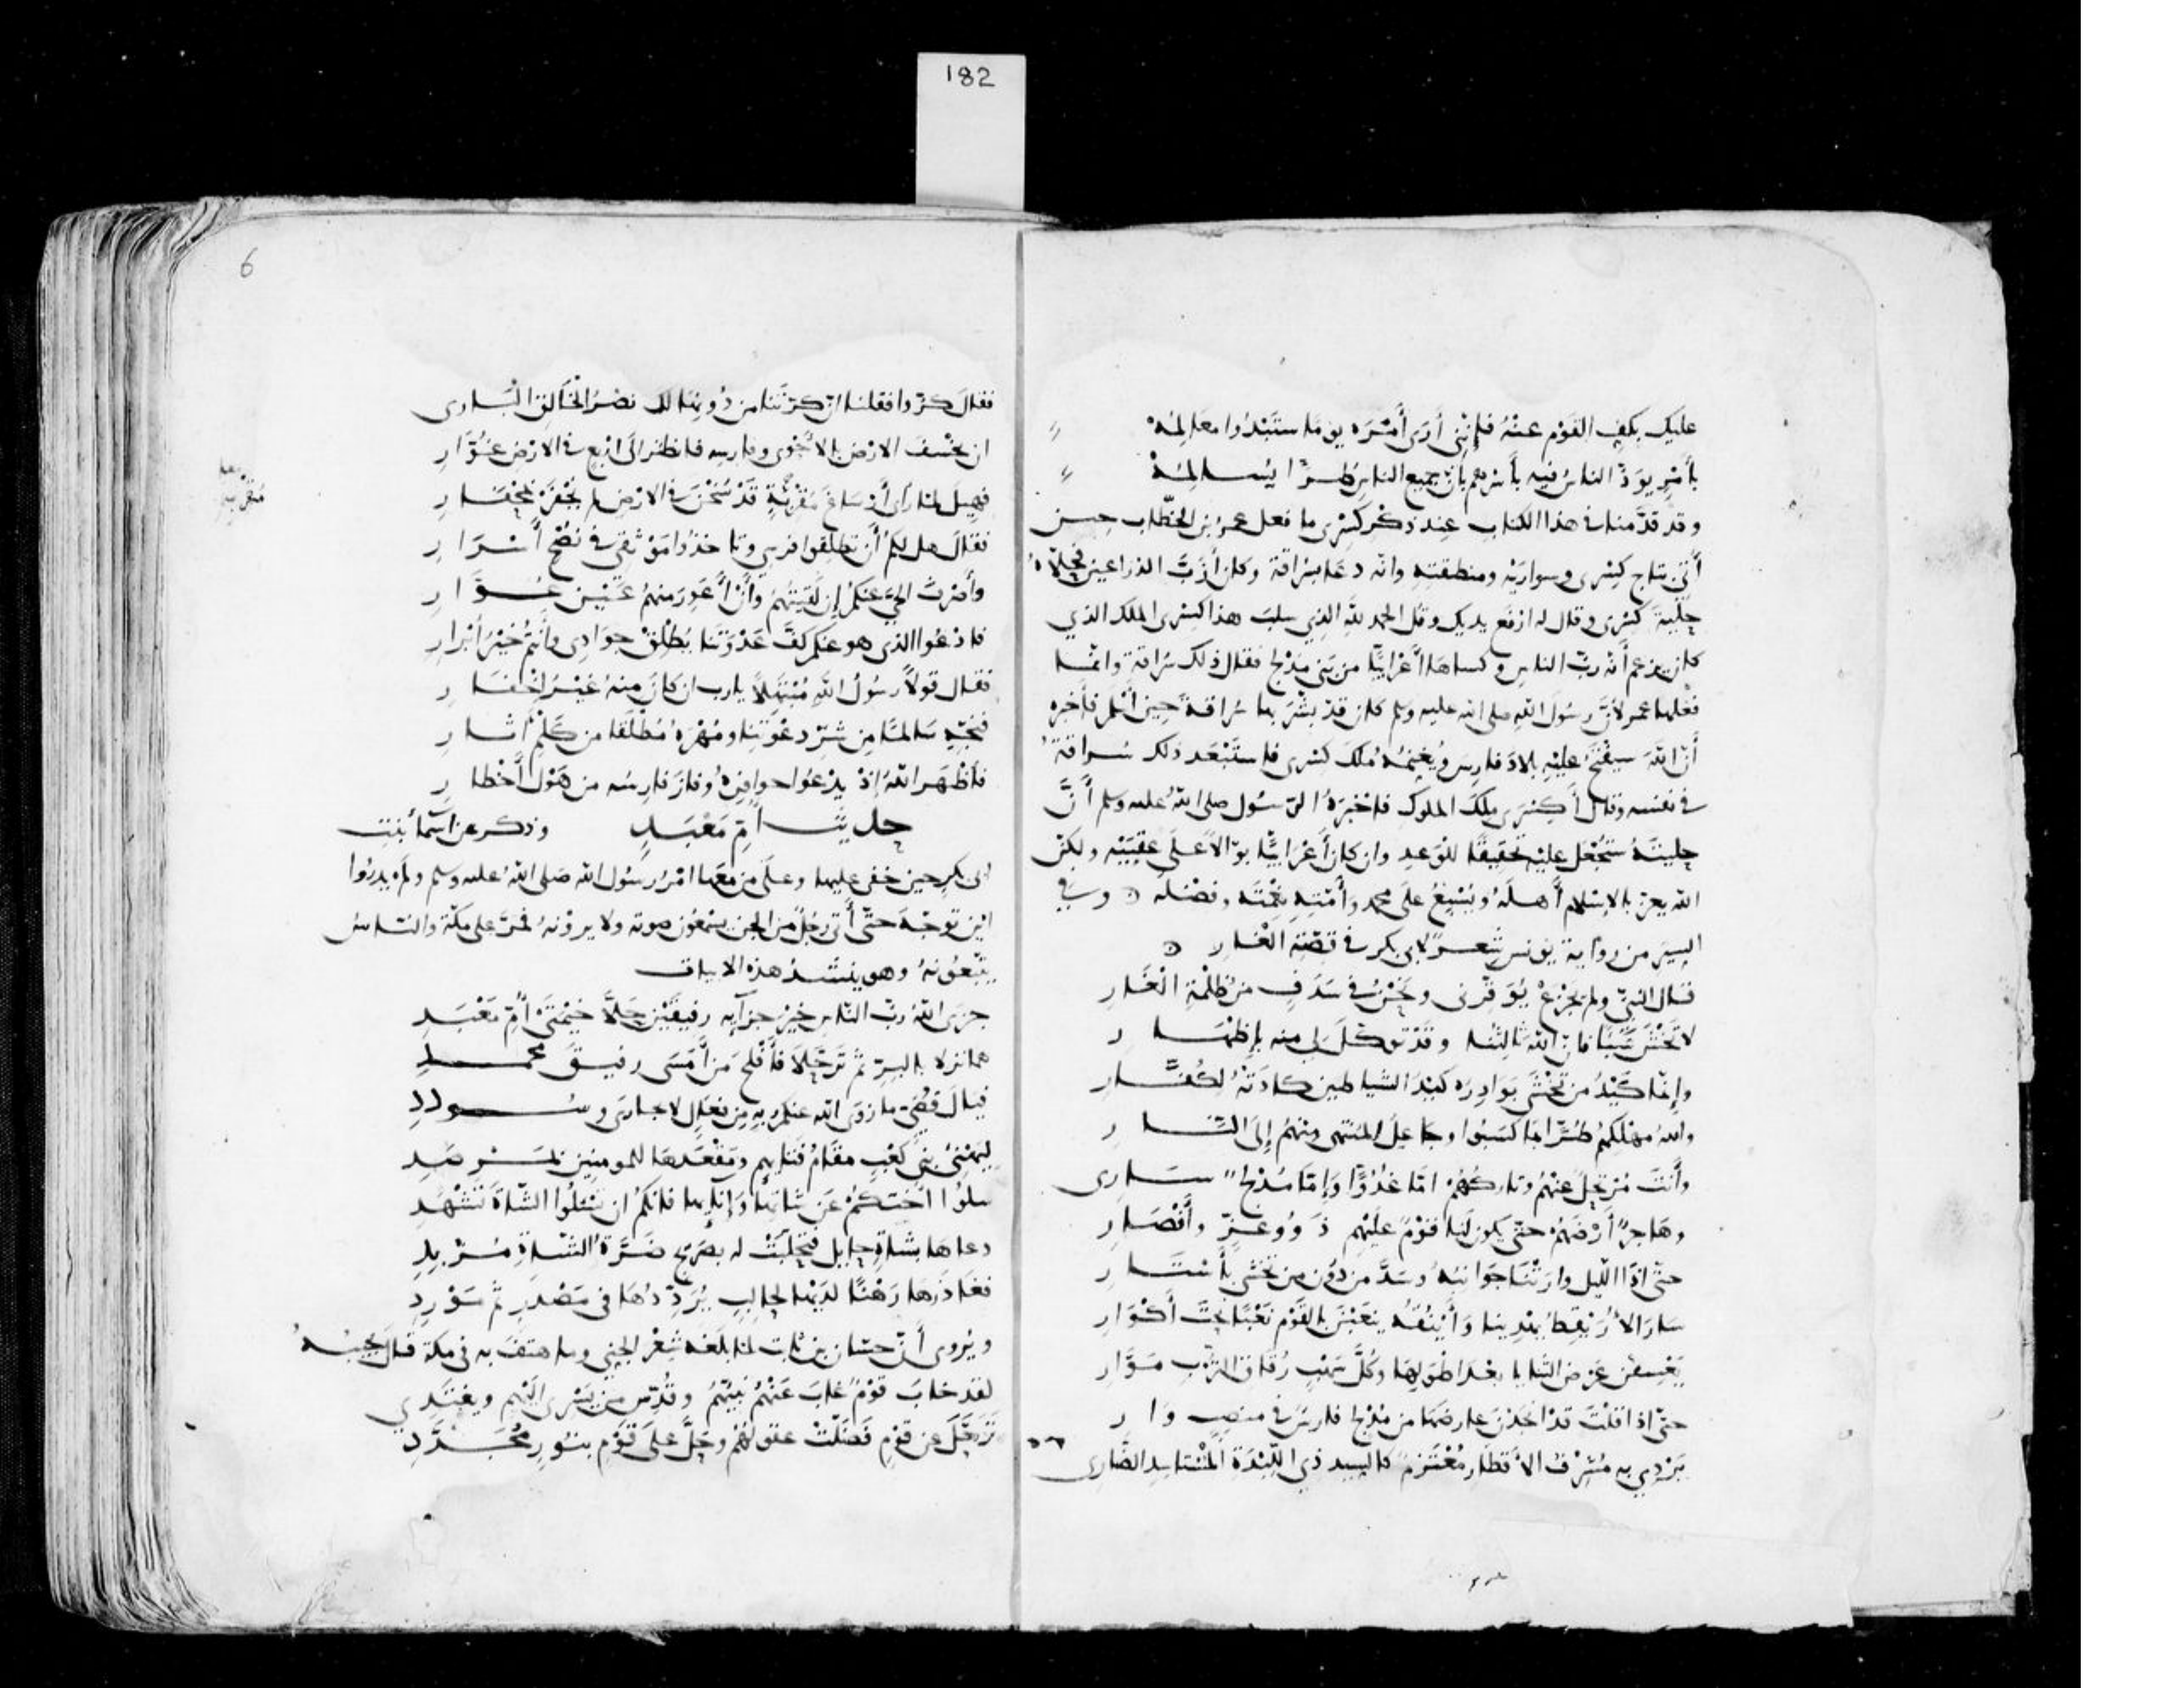 182
عليك بكف القوم عنه فإنني أرى أمره يوما ستبدوا معالمه
بأمر يود الناس فيه بأسرهم بأن جميع الناس طرا يسالمه
وقد قدمنا في هذا الكتاب عند ذكر كسرى ما فعل عمر بن الخطاب حين
أتي بتاج كسرى وسواريه ومنطقته وانه دعا بسراقة وكان أزب الذراعين فحلاه
حلية كسرى وقال له ارفع يديك وقل الحمد لله الذي سلب هذا كسرى الملك الذي
كان يزعم أنه رب الناس وكساها أعرابيا من بني مدلج فقال ذلك سراقة وانما
فعلها عمر لأن رسول الله صلى الله عليه وسلم كان قد بشر بها سراقة حين أسلم فأخبره
أن الله سيفتح عليه بلاد فارس ويغنمه ملك كسرى فاستبعد ذلك سراقة
في نفسه وقال أكسرى ملك الملوك فاخبره الرسول صلى الله عليه وسلم أن
حليته ستجعل عليه تحقيقا للوعد وان كان أعرابيا بوالا على عقبيه ولكن
الله يعز بالاسلام أهله ويسبغ على محمد وأمته نعمته وفضله وفي
السير من رواية يونس شعر لابي بكر في قصة الغار
قال النبي ولم يجزع يوقرني ونحن في سدف من ظلمة الغار
لا تخش شيئا فان الله ثالثنا وقد توكل لي منه بإظهار
وإنما كيد من تخشى بوادره كيد الشياطين كادته لكفار
والله مهلكهم طرا بما كسبوا وجاعل المنتهى منهم إلى النار
وأنت مرتحل عنهم وتاركهم اما غدوا وإما مدلج ساري
وهاجر أرضهم حتى يكون لنا قوم عليهم ذوو عز وأنصار
حتى اذا الليل وارتنا جوانبه وسد من دون من تخشى بأستار
سار الأريقط يهدينا وأينقه ينعبن بالقوم نعبا تحت أكوار
يعسفن عرض الثنايا بعد اطولها وكل سهب رقاق الترب موار
حتى اذا قلت قد انجدن عارضها من مدلج فارس في منصب وار
يردي به مشرف الأقطار معتزم كالسيد ذي اللبدة المستاسد الضاري
6
فقال كروا فقلنا ان كرتنا من دونها لك نصر الخالق الباري
ان يخسف الارض بالأحوى وفارسه فانظر الى اربع في الارض غوار
فهيل لما رأى أرساغ مقربة قد سخن في الارض لم يحفر بمحفار
فقال هل لكم أن تطلقوا فرسي وتاخذوا موثقي في نصح أسرار
وأصرف الحي عنكم إن لقيتهم وأن أعور منهم عين عوار
فادعوا الذي هو عنكم كف عدوتنا يطلق جوادي وأنتم خير أبرار
فقال قولا رسول الله مبتهلا يا رب ان كان منه غير اخفار
فنجه سالما من شر دعوتنا ومهره مطلقا من كلم آثار
فأظهر الله إذ يدعوا حوافره وفاز فارسه من هول أخطار
حديث ام معبد وذكر عن اسماء بنت
ابي بكر حين خفي عليها وعلى من معها امر رسول الله صلى الله عليه وسلم ولم يدروا
اين توجه حتى أتى رجل من الجن يسمعون صوته ولا يرونه فمر على مكة والناس
يتبعونه وهو ينشد هذه الابيات
جزى الله رب الناس خير جزآيه رفيقين حلا خيمتي أم معبد
هما نزلا بالبر ثم ترحلا فأفلح من أمسى رفيق محمد
فيال قصي ما زوى الله عنكم به من فعال لا تجارى وسودد
ليهنئ بني كعب مقام فتاتهم ومقعدها للمومنين بمرصد
سلوا اختكم عن شاتها وإنائها فانكم ان تسئلوا الشاة تشهد
دعاها بشاة حايل فتحلبت له بصريح ضرة الشاة مزبد
فغادرها رهنا لديها لحالب يرددها في مصدر ثم مورد
ويروى أن حسان بن ثابت لما بلغه شعر الجني وما هتف به في مكة قال يجيبه
لقد خاب قوم غاب عنهم نبيهم وقدس من يسري اليهم ويغتدي
ترحل عن قوم فضلت عقولهم وحل على قوم بنور مجدد